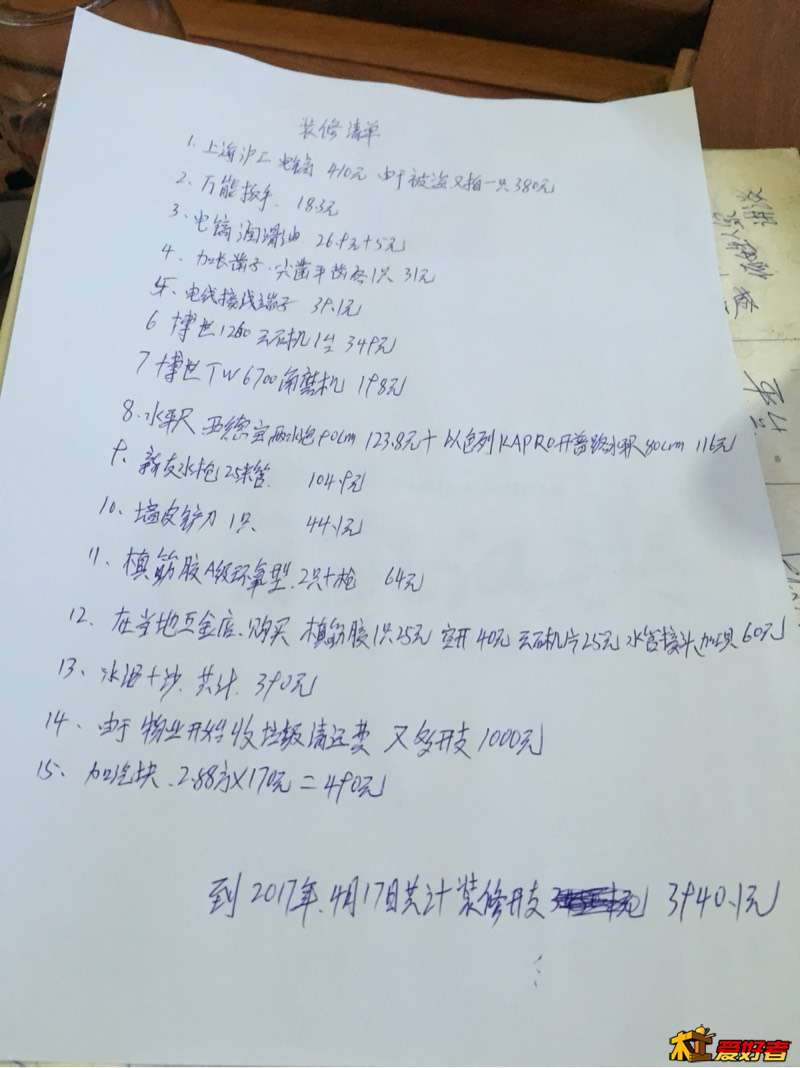 装修清单
1. 上海沪工电镐 410元 由于被盗又拍一只380元
2. 万能扳手. 18.3元
3. 电镐润滑油 26.9元+5元
4. 加长凿子. 尖凿平凿各1只 31元
5、电线接线端子 39.1元
6 博世1260云石机1台 349元
7 博世TW6700角磨机 198元
8.水平尺 90cm 123.8元+以色列KAPRO开普路水平尺80cm 116元
9、新友水枪25米管. 104.9元
10、墙皮铲刀 1只 44.1元
11、植筋胶A级环氧型.2只+枪 64元
12、在当地五金店.购买 植筋胶1只25元 空开40元 云石机片25元 水管接头 60元
13、水泥+沙.共计.390元
14、由于物业开始收垃圾清运费 又多开支1000元
15、加汽块.2.88方×170元=490元
到2017年.4月17日共计装修开支 3940.1元
杠爱好者